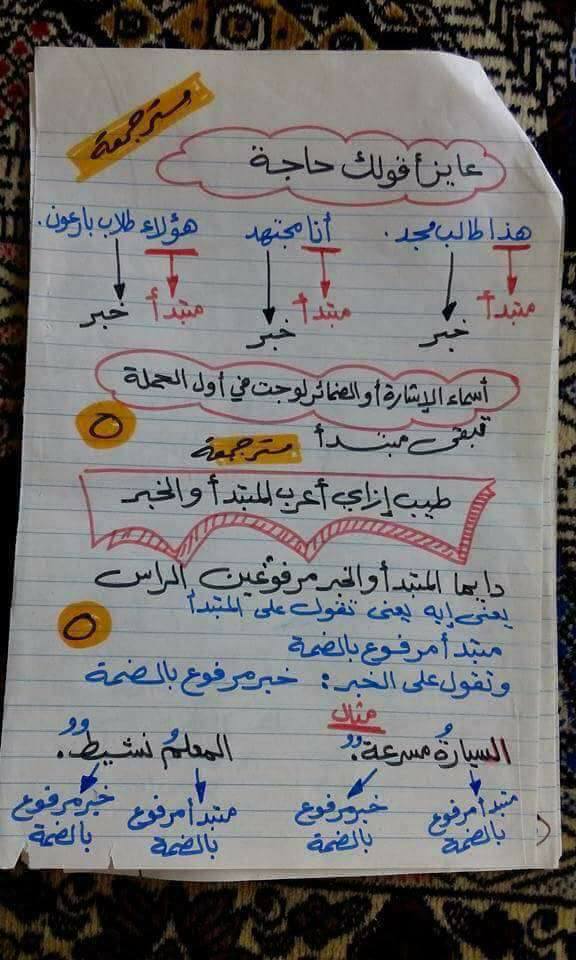 مستر جمعة
عايز أقولك حاجة
هذا طالب مجد. أنا مجتهد هؤلاء طلاب بارعون.
مبتدأ خبر مبتدأ خبر مبتدأ خبر
أسماء الإشارة أو الضمائر لو جت في أول الجملة
تبقى مبتدأ
مستر جمعة
طيب إزاي أعرب المبتدأ والخبر
دايما المبتدأ والخبر مرفوعين الراس
يعني إيه يعني تقول على المبتدأ
مبتدأ مرفوع بالضمة
وتقول على الخبر: خبر مرفوع بالضمة
مثال
السيارةُ مسرعةٌ. المعلمُ نشيطٌ.
مبتدأ مرفوع خبر مرفوع مبتدأ مرفوع خبر مرفوع
بالضمة بالضمة بالضمة بالضمة